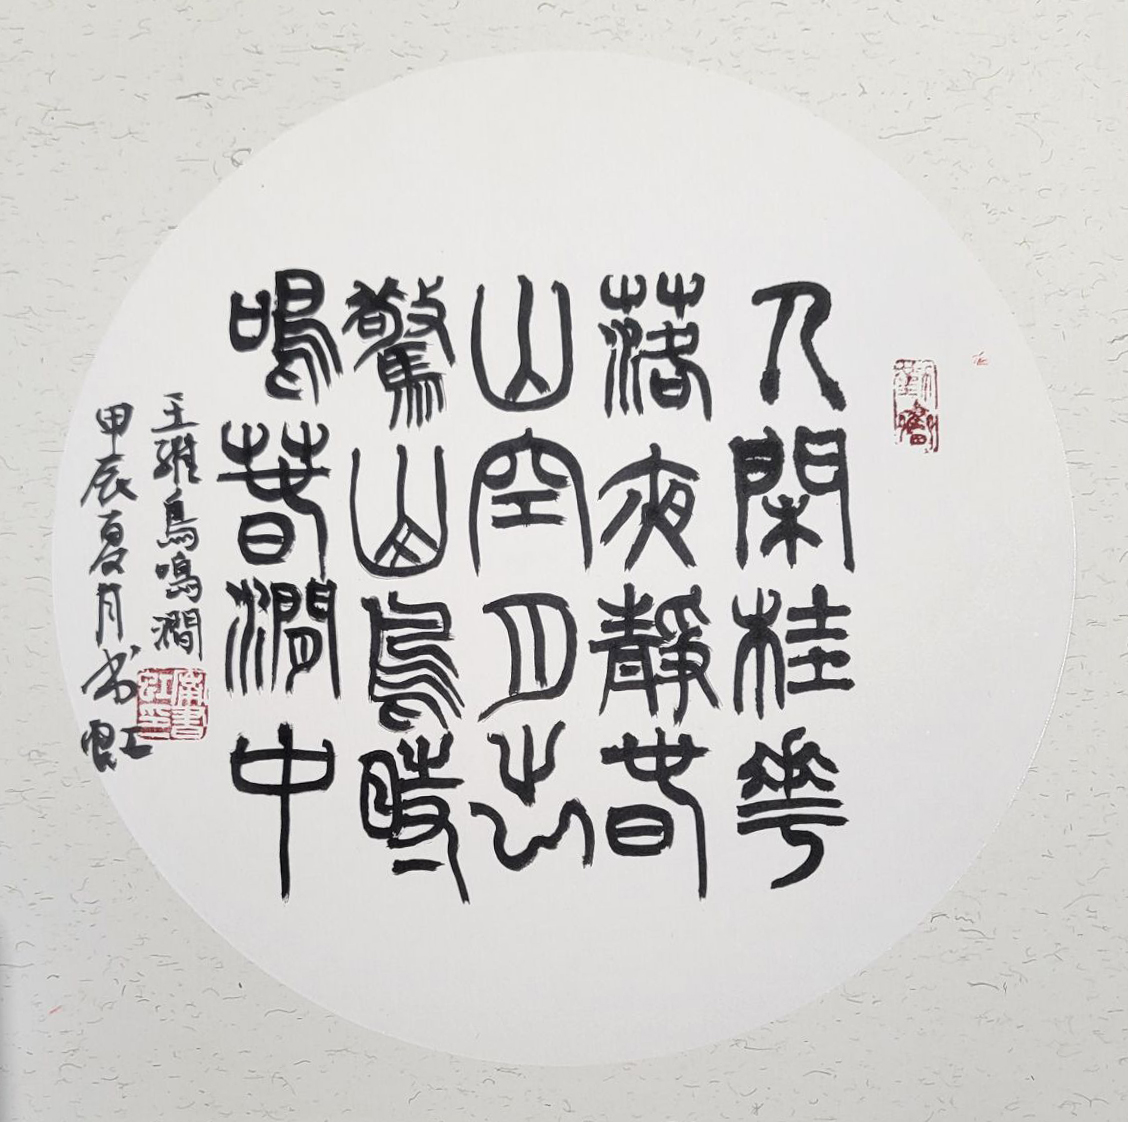 人閑桂華
落夜靜春
山空月出
驚山鳥時
鳴春澗中
王維鳥鳴澗
甲辰夏月书虹